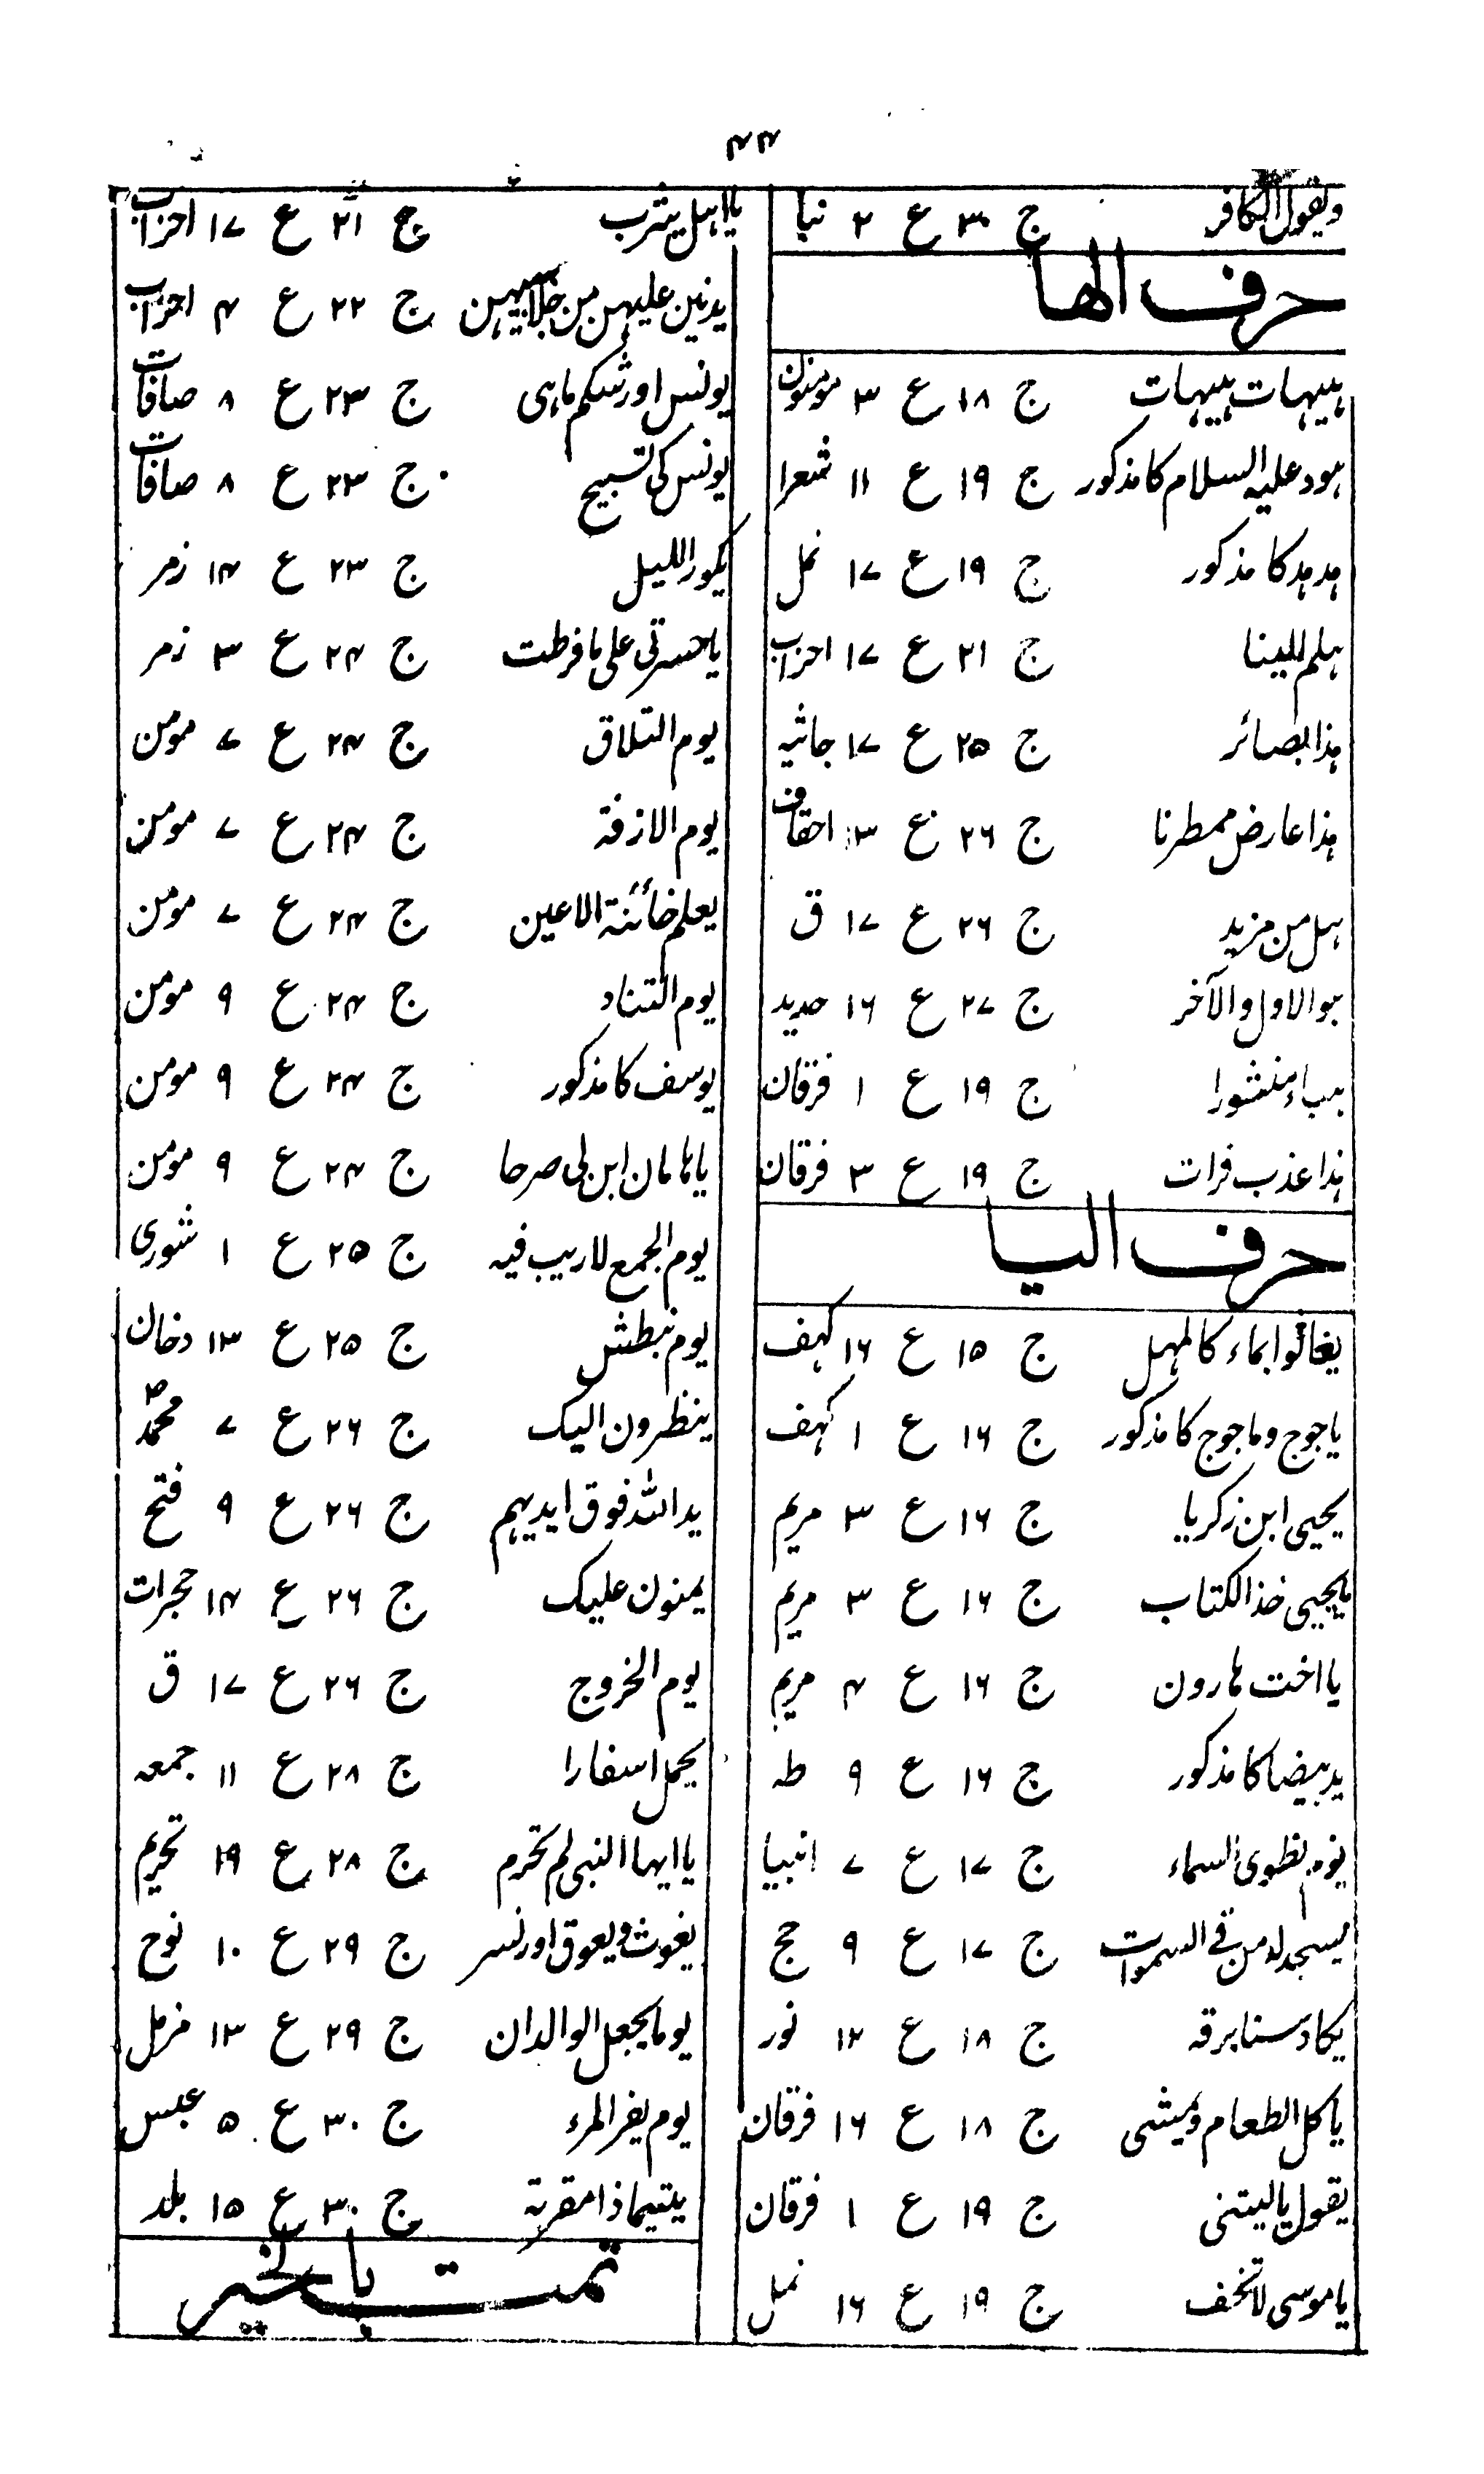 ۴۴
ویقول الکافر ج ۳۰ ع ۲ نبا
حرف الھا
ہیہات ہیہات ج ۱۸ ع ۳ مومنون
ہود علیہ السلام کا مذکور ج ۱۹ ع ۱۱ شعرا
ہدہد کا مذکور ج ۱۹ ع ۱۷ نمل
ہلم الینا ج ۲۱ ع ۱۷ احزاب
ہذا بصائر ج ۲۵ ع ۱۷ جاثیہ
ہذا عارض ممطرنا ج ۲۶ ع ۳ احقاف
ہل من مزید ج ۲۶ ع ۱۷ ق
ہو الاول والآخر ج ۲۷ ع ۱۶ حدید
ہباء منثورا ج ۱۹ ع ۱ فرقان
ہذا عذب فرات ج ۱۹ ع ۳ فرقان
حرف الیا
یغاثوا بماء کالمہل ج ۱۵ ع ۱۶ کہف
یاجوج و ماجوج کا مذکور ج ۱۶ ع ۱ کہف
یحیی ابن زکریا ج ۱۶ ع ۳ مریم
یایحیی خذ الکتاب ج ۱۶ ع ۳ مریم
یا اخت ہارون ج ۱۶ ع ۴ مریم
ید بیضا کا مذکور ج ۱۶ ع ۹ طہ
یوم نطوی السماء ج ۱۷ ع ۷ انبیا
یسجد لہ من فی السموات ج ۱۷ ع ۹ حج
یکاد سنا برقہ ج ۱۸ ع ۱۲ نور
یاکل الطعام ویمشی ج ۱۸ ع ۱۶ فرقان
یقول یالیتنی ج ۱۹ ع ۱ فرقان
یا موسی لا تخف ج ۱۹ ع ۱۶ نمل
یا اہل یثرب ج ۲۱ ع ۱۷ احزاب
یدنین علیہن من جلابیبہن ج ۲۲ ع ۴ احزاب
یونس اور شکم ماہی ج ۲۳ ع ۸ صافات
یونس کی تسبیح ج ۲۳ ع ۸ صافات
یکور اللیل ج ۲۳ ع ۱۴ زمر
یا حسرتی علی ما فرطت ج ۲۴ ع ۳ زمر
یوم التلاق ج ۲۴ ع ۷ مومن
یوم الازفۃ ج ۲۴ ع ۷ مومن
یعلم خائنۃ الاعین ج ۲۴ ع ۷ مومن
یوم التناد ج ۲۴ ع ۹ مومن
یوسف کا مذکور ج ۲۴ ع ۹ مومن
یا ہامان ابن لی صرحا ج ۲۴ ع ۹ مومن
یوم الجمع لا ریب فیہ ج ۲۵ ع ۱ شوری
یوم نبطش ج ۲۵ ع ۱۳ دخان
ینظرون الیک ج ۲۶ ع ۷ محمدؐ
ید اللہ فوق ایدیہم ج ۲۶ ع ۹ فتح
یمنون علیک ج ۲۶ ع ۱۴ حجرات
یوم الخروج ج ۲۶ ع ۱۷ ق
یحمل اسفارا ج ۲۸ ع ۱۱ جمعہ
یا ایہا النبی لم تحرم ج ۲۸ ع ۱۹ تحریم
یغوث ویعوق اور نسر ج ۲۹ ع ۱۰ نوح
یوما یجعل الوالدان ج ۲۹ ع ۱۳ مزمل
یوم یفر المرء ج ۳۰ ع ۵ عبس
یتیما ذا مقربۃ ج ۳۰ ع ۱۵ بلد
تمت بالخیر